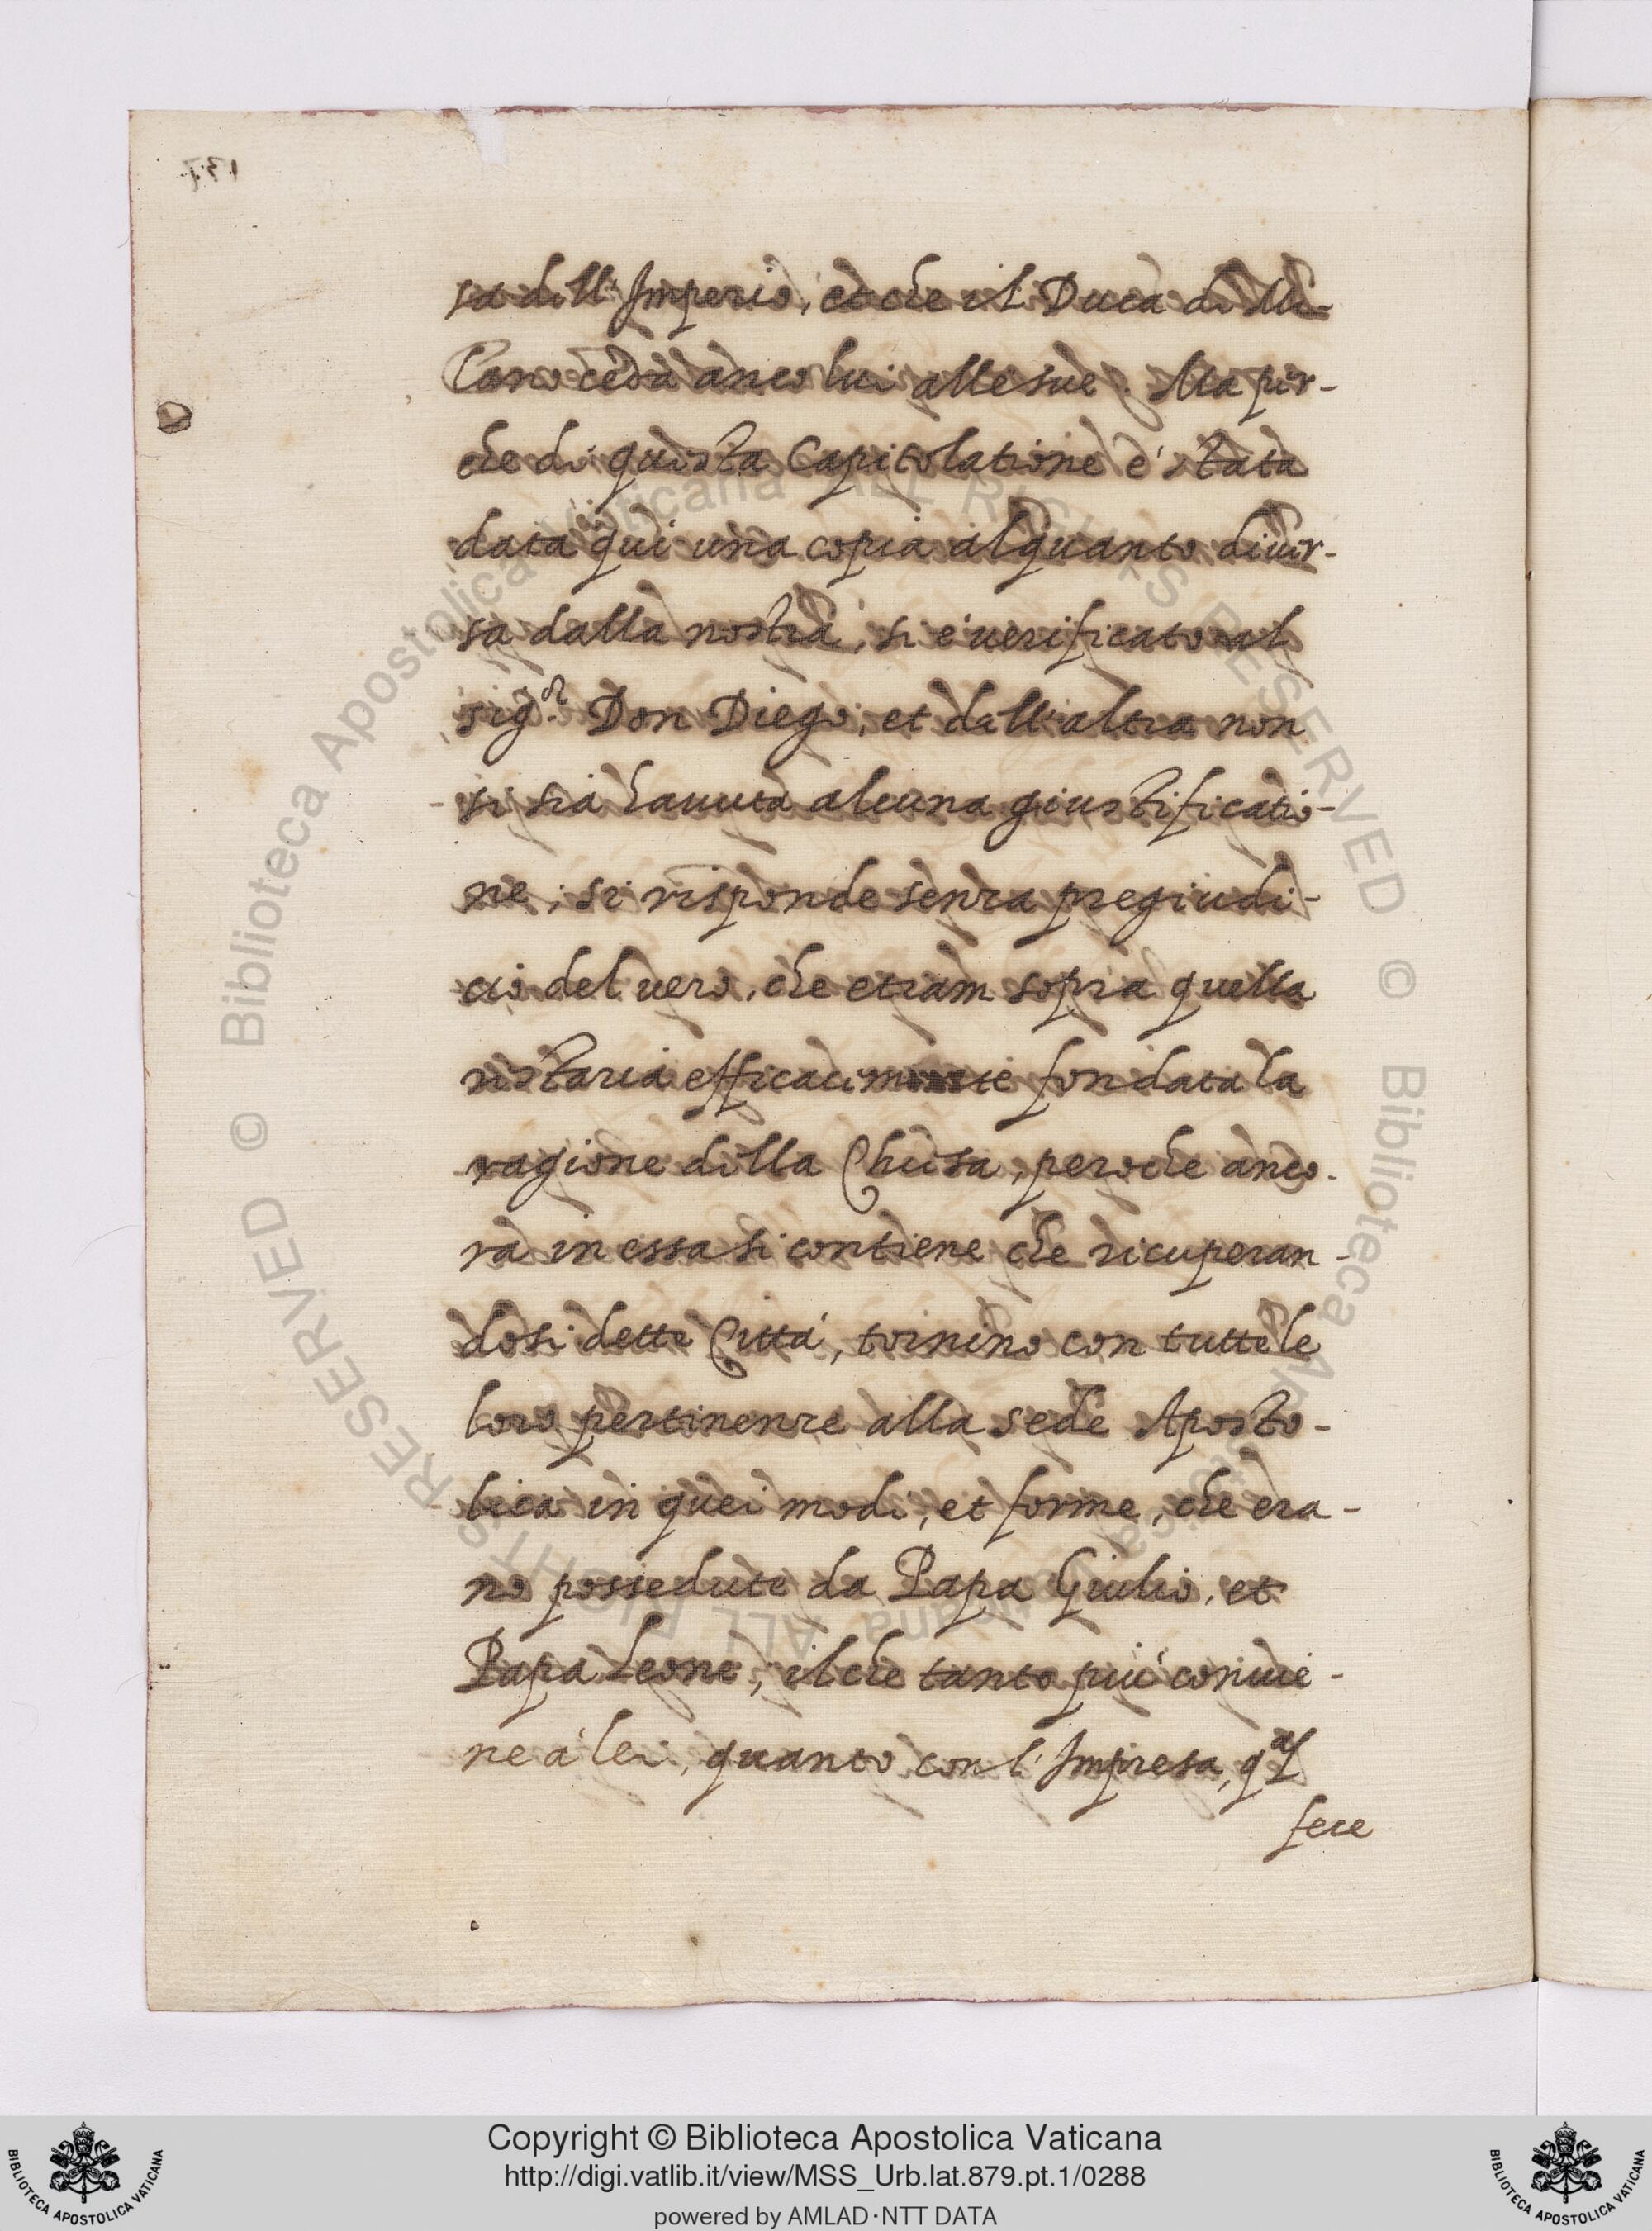 sa dell'Imperio, et che il Duca di Mi-
lano ceda anco lui alle sue. Ma per-
che di questa Capitolatione é stata
data qui una copia alquanto diver-
sa dalla nostra, si é verificato al
sig.r Don Diego, et dall'altra non
si sia havuta alcuna giustificatio-
ne, si risponde senza pregiudi-
cio del vero, che etiam sopra quella
restaria efficacimente fondata la
ragione della Chiesa, peroche anco-
ra in essa si contiene che ricuperan-
dosi dette Cittá, tornino con tutte le
loro pertinenze alla sede Aposto-
lica in quei modi, et forme, che era-
no possedute da Papa Giulio, et
Papa Leone, il che tanto piú convie-
ne á lei, quanto con l'Impresa, q.al
fece
Copyright © Biblioteca Apostolica Vaticana
http://digi.vatlib.it/view/MSS_Urb.lat.879.pt.1/0288
powered by AMLAD·NTT DATA
BIBLIOTECA APOSTOLICA VATICANA
BIBLIOTECA APOSTOLICA VATICANA
© Biblioteca Apostolica Vaticana ALL RIGHTS RESERVED © Biblioteca Apostolica Vaticana ALL RIGHTS RESERVED